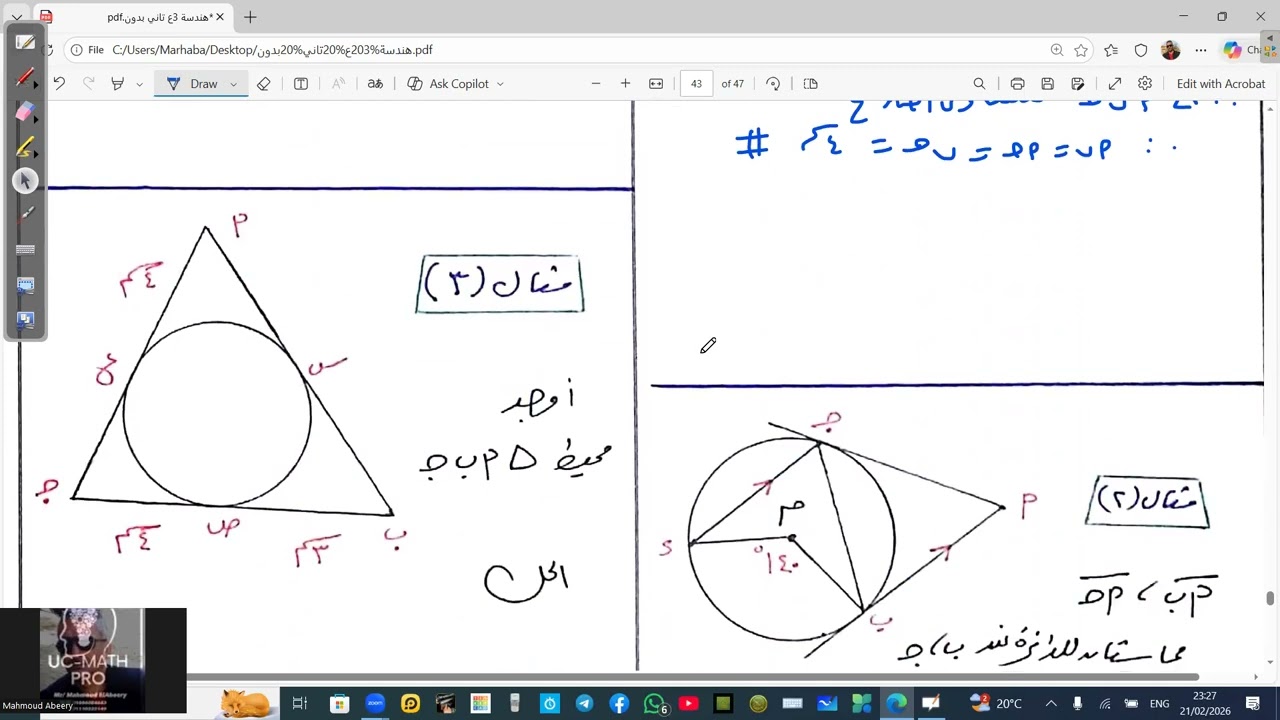 هندسة 3ع تاني بدون.pdf*
File C:/Users/Marhaba/Desktop/هندسة%203ع%20تاني%20بدون.pdf
Draw
Ask Copilot
43 of 47
Edit with Acrobat
∴ ٢ب = ٢ه = ب ه = ٤سم #
مثال (٣)
أوجد
محيط △ ٢ب ج
الحل
٢
٤سم
ع
س
ج
٤سم
ص
٣سم
ب
مثال (٢)
٢ب ، ٢ج
مماستان للدائرة عند ب ، ج
ج
٢
م
١٤٠°
د
ب
UC-MATH
PRO
Mr/ Mahmoud ElAbeery
Mahmoud Abeery
zoom
20°C
ENG
23:27
21/02/2026